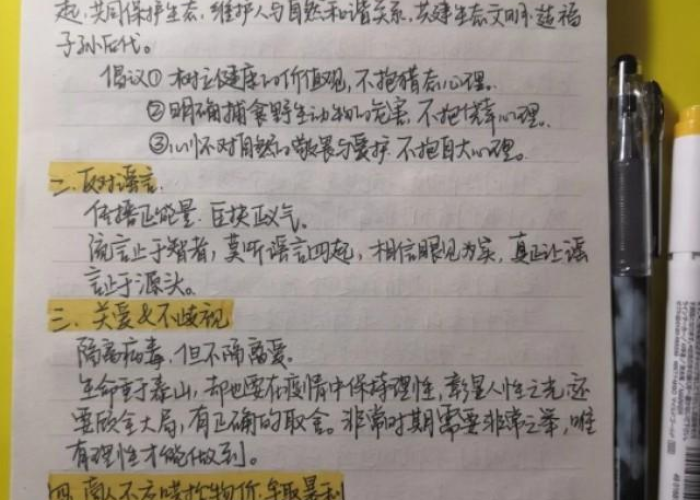 起,共同保护生态,维护人与自然和谐关系,共建生态文明,造福
子孙后代。
倡议① 树立健康的价值观,不抱猎奇心理。
②明确捕食野生动物的危害,不抱侥幸心理。
③心怀对自然的敬畏与爱护,不抱自大心理。
二、反对谣言
传播正能量,匡扶正义气。
流言止于智者,莫听谣言四起,相信眼见为实,真正让谣
言止于源头。
三、关爱&不歧视
隔离病毒,但不隔离爱。
生命重于泰山,却也要在疫情中保持理性,彰显人性之光,还
要顾全大局,有正确的取舍。非常时期需要非常之举,唯
有理性才能做到。
四、商人不应哄抬物价,牟取暴利